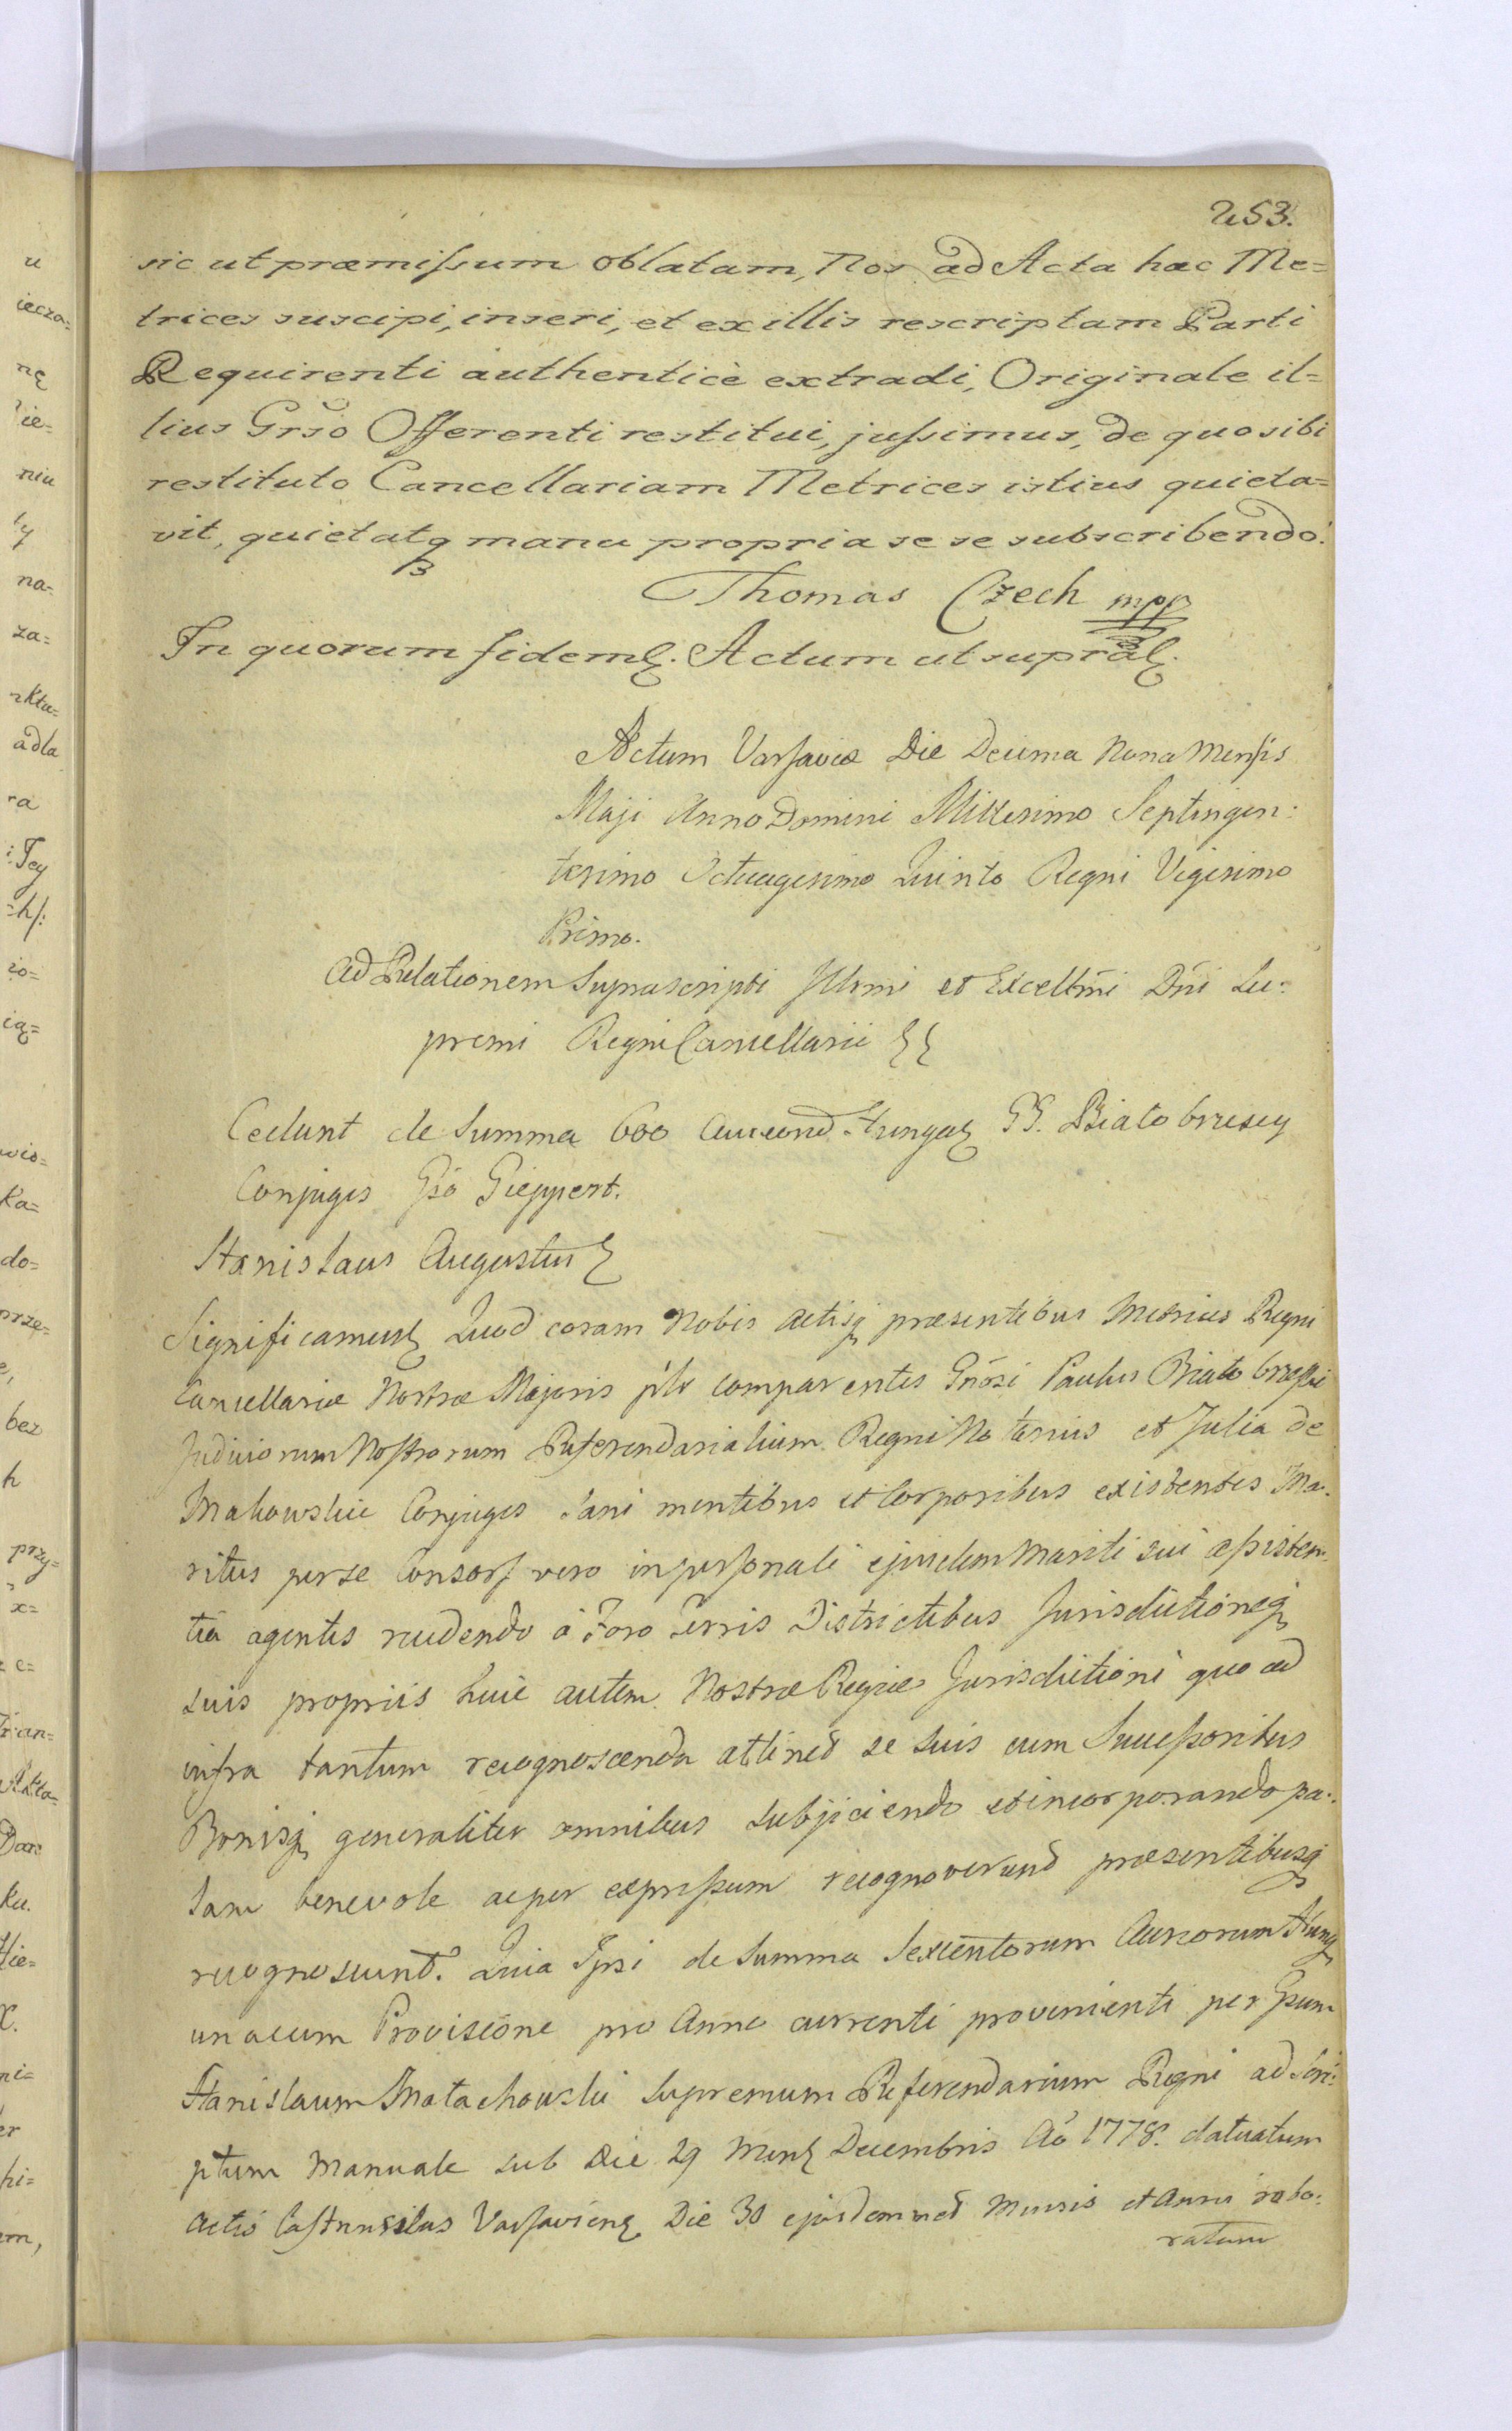 253.
sic ut præmissum oblatam, Nos ad Acta hæc Me=
trices suscipi, inseri, et ex illis rescriptam Parti
Requirenti authenticè extradi, Originale il=
lius Grso Offerenti restitui, jussimus, de quo sibi
restituto Cancellariam Metrices istius quieta=
vit, quietatq manu propria se se subscribendo.
Thomas Czech mpp
In quorum fidem. Actum ut supra.
Actum Varsaviæ Die Decima Nona Mensis
Maji Anno Domini Millesimo Septingen:
tesimo Octuagesimo Quinto Regni Vigesimo
Primo.
Ad Relationem Suprascripti Illrmi et Excellmi Dni Su:
premi Regni Cancellarii
Cedunt de Summa 600 Aureord Hungar GG. Białobrzescy
Conjuges Gso Gieppert.
Stanislaus Augustus
Significamus Quod coram Nobis Actisq præsentibus Metrices Regni
Cancellariæ Nostræ Majoris plr comparentes Gnosi Paulus Białobrzeski
Judiciorum Nostrorum Referendarialium Regni Notarius et Julia de
Makowskie Conjuges Sani mentibus et Corporibus existentes Ma:
ritus per se Consors vero in personali ejusdem Mariti sui assisten:
tia agentes recedendo à Foro Terris Districtibus Jurisdictioneq
suis propriis huic autem Nostræ Regiæ Jurisdictioni quo ad
infra tantum recognoscenda attined se suis cum Successoribus
Bonisq generaliter omnibus subjiciendo et incorporando pa:
lam benevole ac per expressum recognoverund præsentibusq
recognoscund. Quia Ipsi de Summa Sexcentorum Aureorum Hung
una cum Provisione pro Anno currenti provenienti per Gsum
Stanislaum Małachowski Supremum Referendarium Regni ad Scri:
ptum Manuale sub Die 29 Mens Decembris Ao 1778. datuatum
Actis Castrensibus Varsavieng Die 30 ejusdemmed Mensis et Anni robo:
ratum